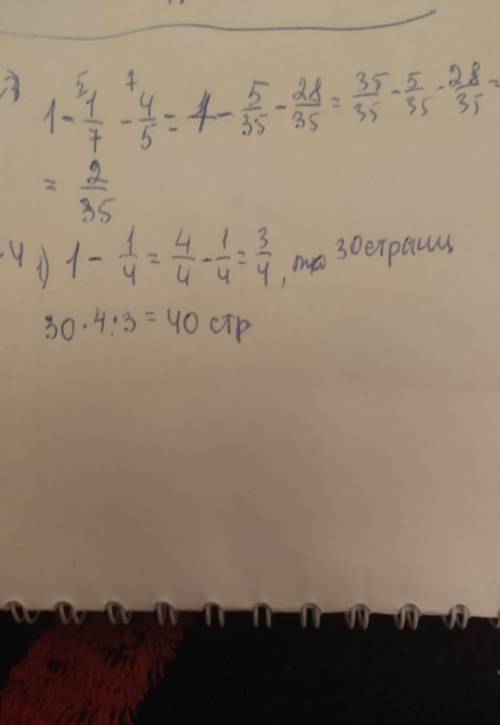 1 - 1/7 - 4/5 = 1 - 5/35 - 28/35 = 35/35 - 5/35 - 28/35 =
= 2/35
4 1) 1 - 1/4 = 4/4 - 1/4 = 3/4, это 30 страниц
30 · 4 : 3 = 40 стр